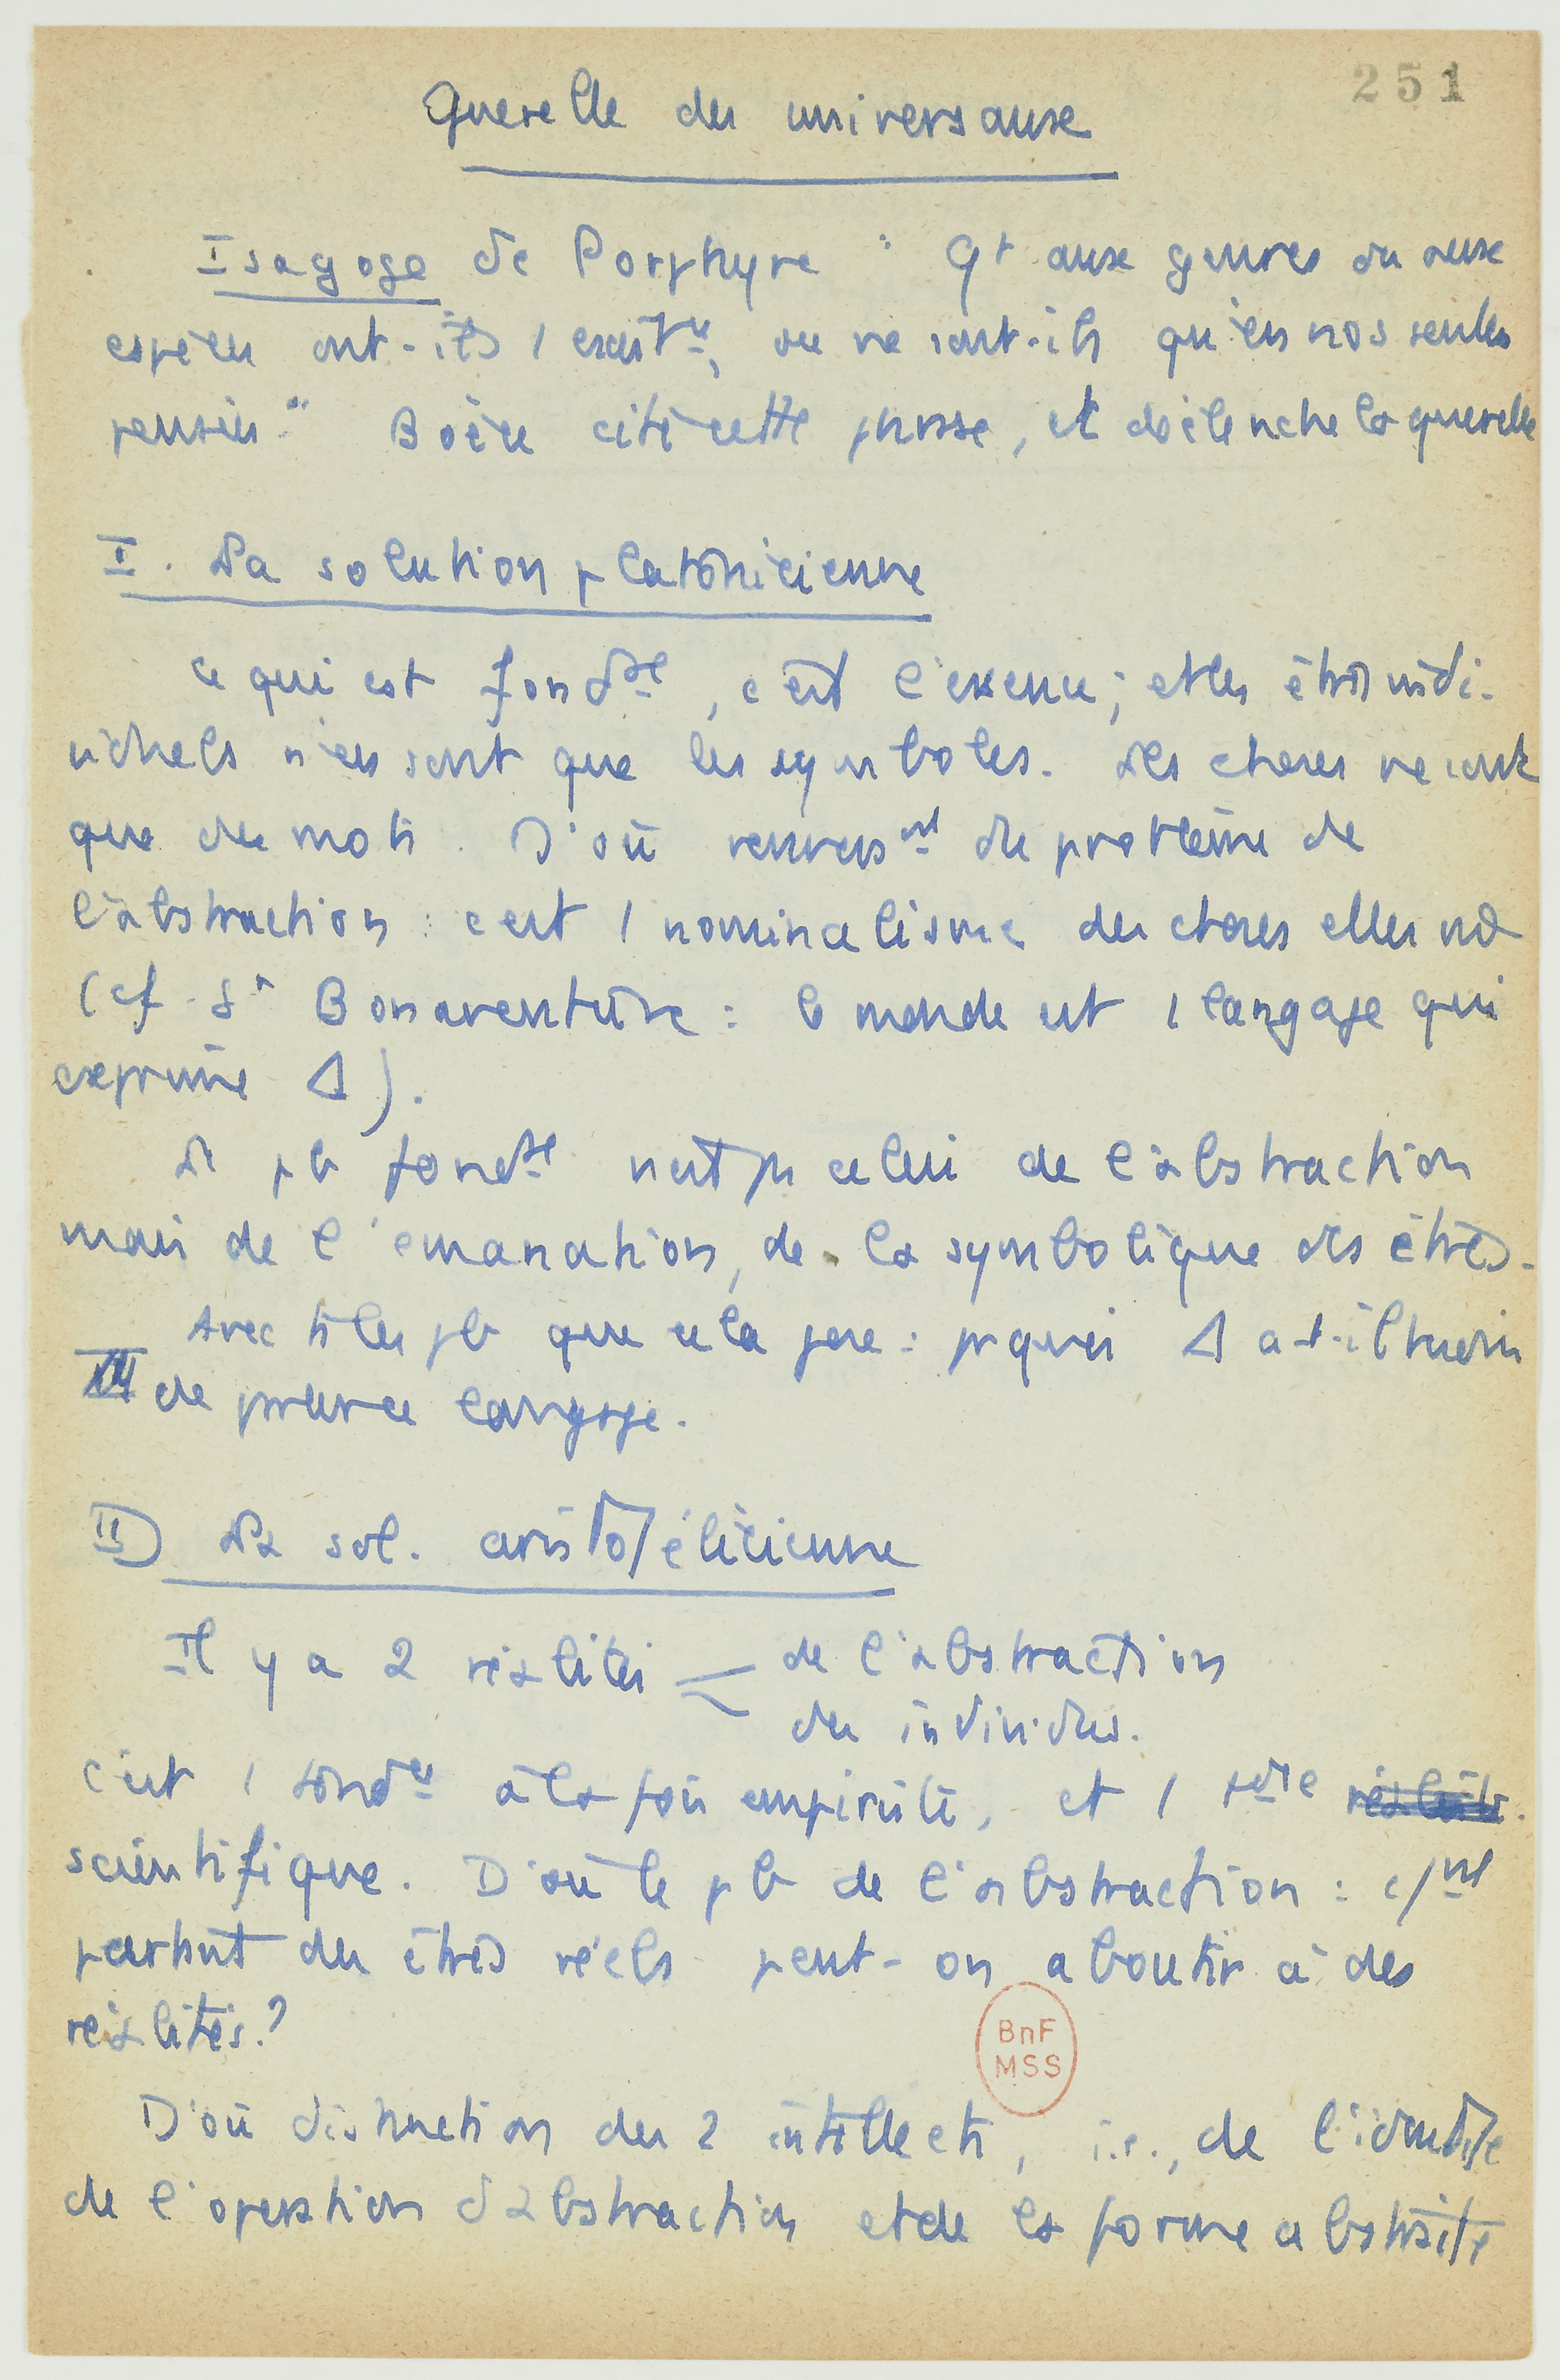 251
Querelle des universaux
Isagoge de Porphyre " Qt aux genres ou aux
espèces ont-ils 1 existce, ou ne sont-ils qu'en nos seules
pensées" Boèce cite cette phrase, et déclenche la querelle
I. La solution platonicienne
Ce qui est fondal, c'est l'essence; et les êtres indi-
viduels n'en sont que les symboles. Les choses ne sont
que des mots. D'où renversnt du problème de
l'abstraction : c'est 1 nominalisme des choses elles m̂
(cf. St Bonaventure : le monde est 1 langage qui
exprime Δ).
Le pb fondal n'est ps celui de l'abstraction
mais de l'émanation, de la symbolique des êtres.
Avec ts les pb que cela pose : pr quoi Δ a-t-il besoin
de parler ce langage.
II) La sol. aristotélicienne
Il y a 2 réalités < de l'abstraction
des individus.
C'est 1 tendce à la fois empiriste, et 1 scientifique.
D'où le pb de l'abstraction : c/nt
partant des êtres réels peut-on aboutir à des
réalités?
D'où distinction des 2 intellects, i.e., de l'identité
de l'opération d'abstraction et de la forme abstraite
BnF
MSS